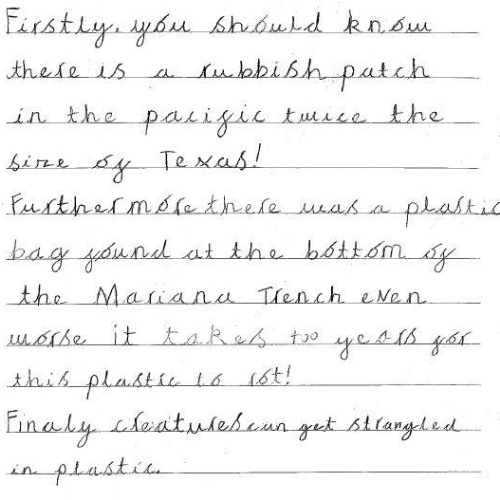 Firstly, you should know
there is a rubbish patch
in the pacific twice the
size of Texas!
Furthermore there was a plastic
bag found at the bottom of
the Mariana Trench even
worse it takes 100 years for
this plastic to rot!
Finaly creatures can get strangled
in plastic.